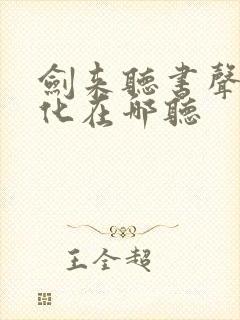 劍來聽書聲
化在哪聽
王全超